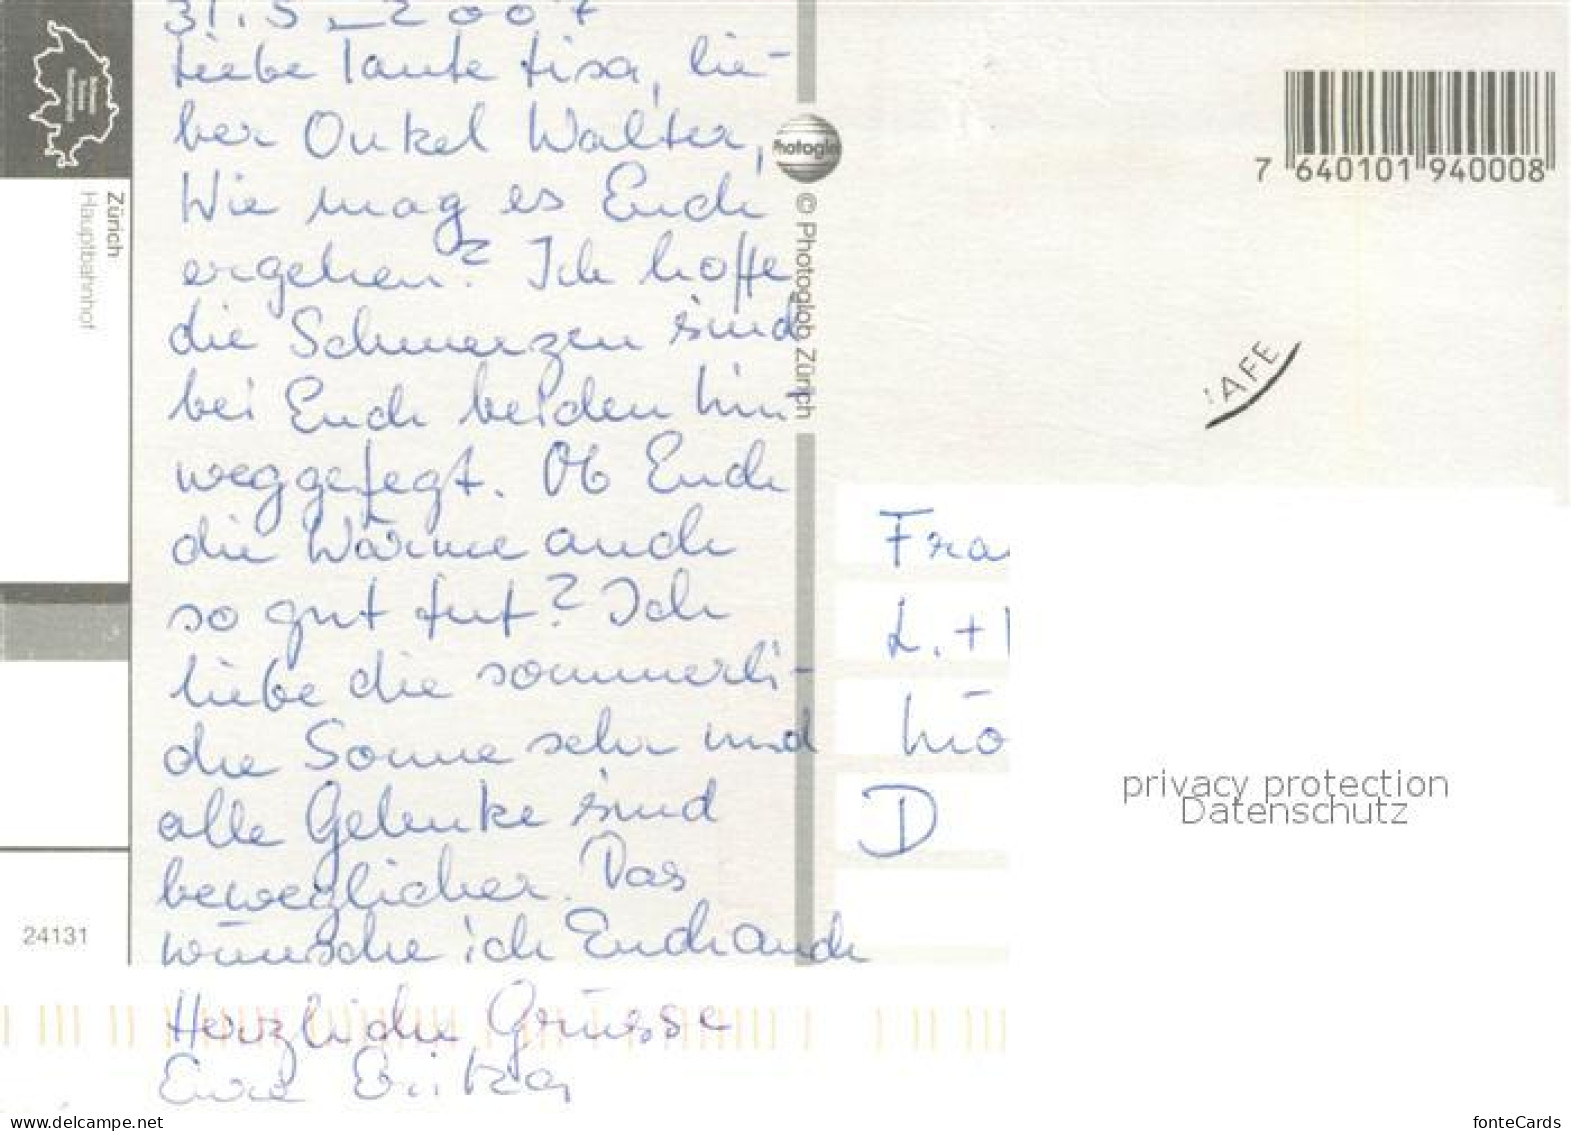 31.5.2007
Liebe Tante Lisa, lie-
ber Onkel Walter,
Wie mag es Euch
ergehen? Ich hoffe
die Schmerzen sind
bei Euch beiden hin
weggefegt. Ob Euch
die Wärme auch
so gut tut? Ich
liebe die sommerli-
che Sonne sehr und
alle Gelenke sind
beweglicher. Das
wünsche ich Euch auch
Herzliche Grüsse
Eure
Schweiz
Suisse
Switzerland
Zürich
Hauptbahnhof
24131
Photoglob
© Photoglob Zürich
7 640101 940008
AFE
Fra
L. +
D
privacy protection
Datenschutz
www.delcampe.net
fonteCards